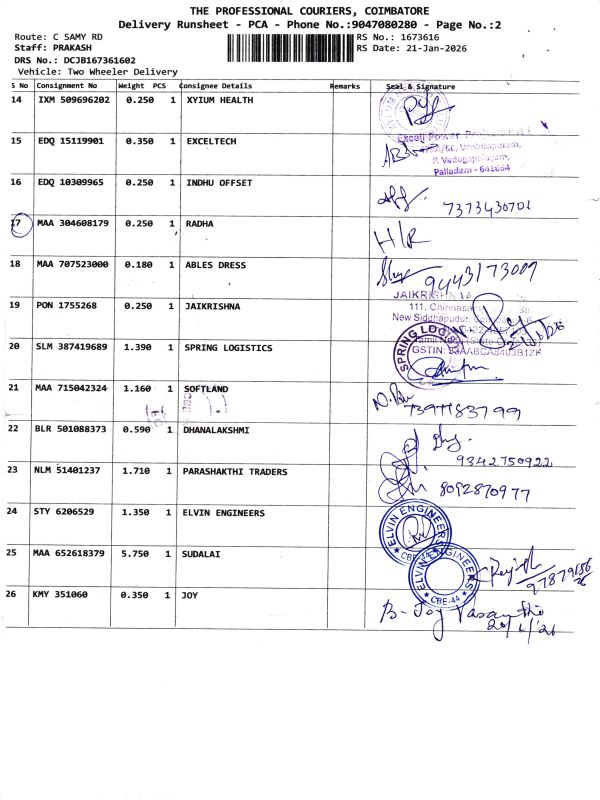 THE PROFESSIONAL COURIERS, COIMBATORE
Delivery Runsheet - PCA - Phone No.:9047080280 - Page No.:2
Route: C SAMY RD
RS No.: 1673616
Staff: PRAKASH
RS Date: 21-Jan-2026
DRS No.: DCJB167361602
Vehicle: Two Wheeler Delivery
S No Consignment No Weight PCS Consignee Details Remarks Seal & Signature
14 IXM 509696202 0.250 1 XYIUM HEALTH
15 EDQ 15119901 0.350 1 EXCELTECH
P. Vadugapalayam,
Palladam - 641664
16 EDQ 10309965 0.250 1 INDHU OFFSET
7373430701
17 MAA 304608179 0.250 1 RADHA H/R
18 MAA 707523000 0.180 1 ABLES DRESS
9443173009
19 PON 1755268 0.250 1 JAIKRISHNA
JAIKRISHNA
111, Chinnasa
New Siddhapudur,
20 SLM 387419689 1.390 1 SPRING LOGISTICS
SPRING LOGIS
GSTIN: 33AABCA8403B1ZF
21 MAA 715042324 1.160 1 SOFTLAND
22 BLR 501088373 0.590 1 DHANALAKSHMI
9342750922
23 NLM 51401237 1.710 1 PARASHAKTHI TRADERS
8092870977
24 STY 6206529 1.350 1 ELVIN ENGINEERS
ELVIN ENGINEERS
CBE-44
25 MAA 652618379 5.750 1 SUDALAI
ELVIN ENGINEERS
CBE-44
26 KMY 351060 0.350 1 JOY
B- Joy Vasanthi